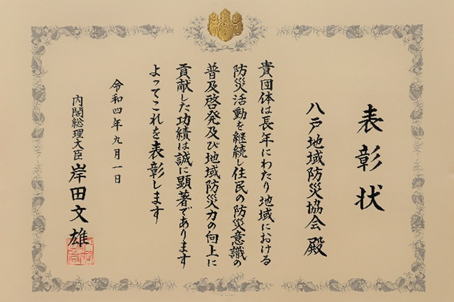 表彰状
八戸地域防災協会 殿
貴団体は長年にわたり地域における
防災活動を継続し住民の防災意識の
普及啓発及び地域防災力の向上に
貢献した功績は誠に顕著であります
よってこれを表彰します
令和四年九月一日
内閣総理大臣 岸田文雄